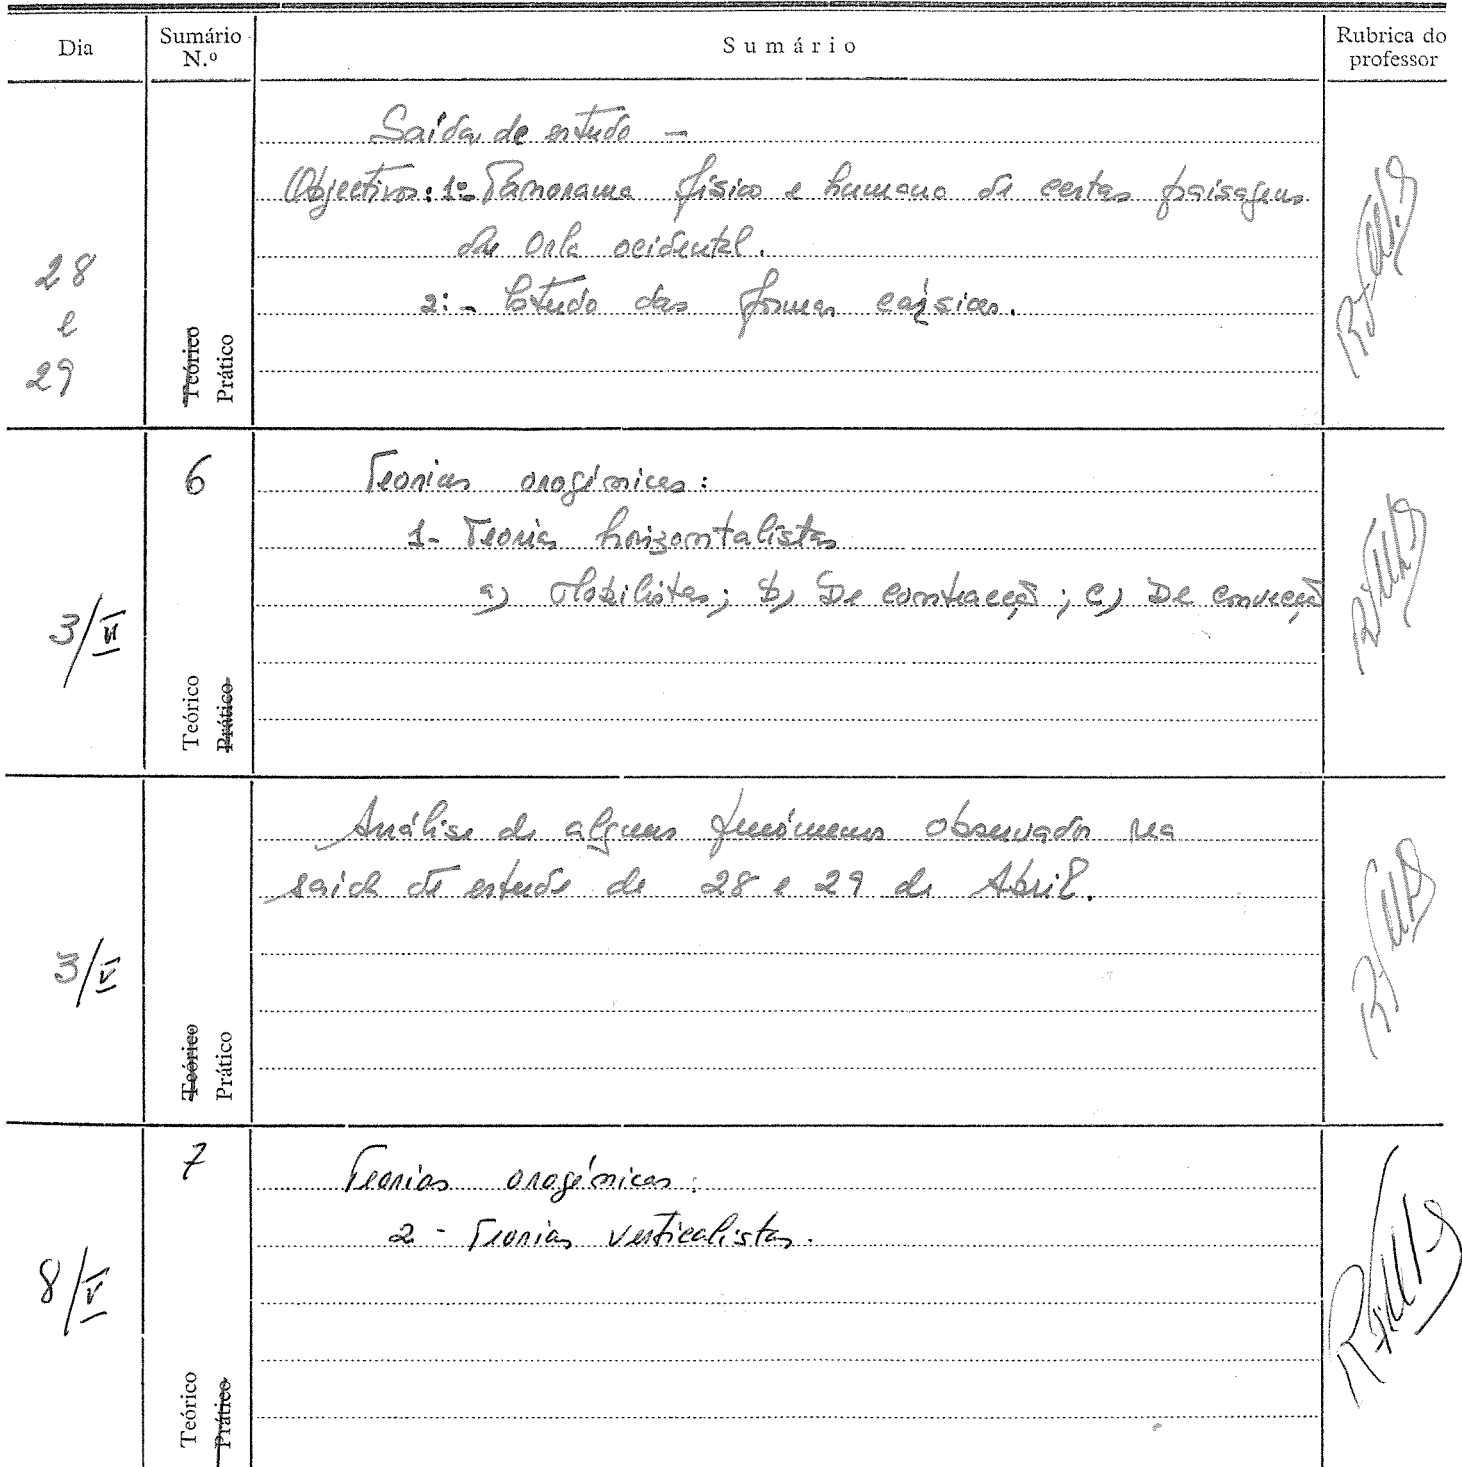 Dia
Sumário N.º
Sumário
Rubrica do professor
28
e
29
Teórico
Prático
Saída de estudo -
Objectivos: 1º Panorama físico e humano de certas paisagens
da Orla ocidental.
2º - Estudo das formas cársicas.
3/VI
6
Teórico
Prático
Teorias orogénicas:
1- Teorias horizontalistas
a) Mobilistas; b) De contracção; c) De convecção
3/V
Teórico
Prático
Análise de alguns fenómenos observados na
saída de estudo de 28 e 29 de Abril.
8/V
7
Teórico
Prático
Teorias orogénicas:
2 - Teorias verticalistas.